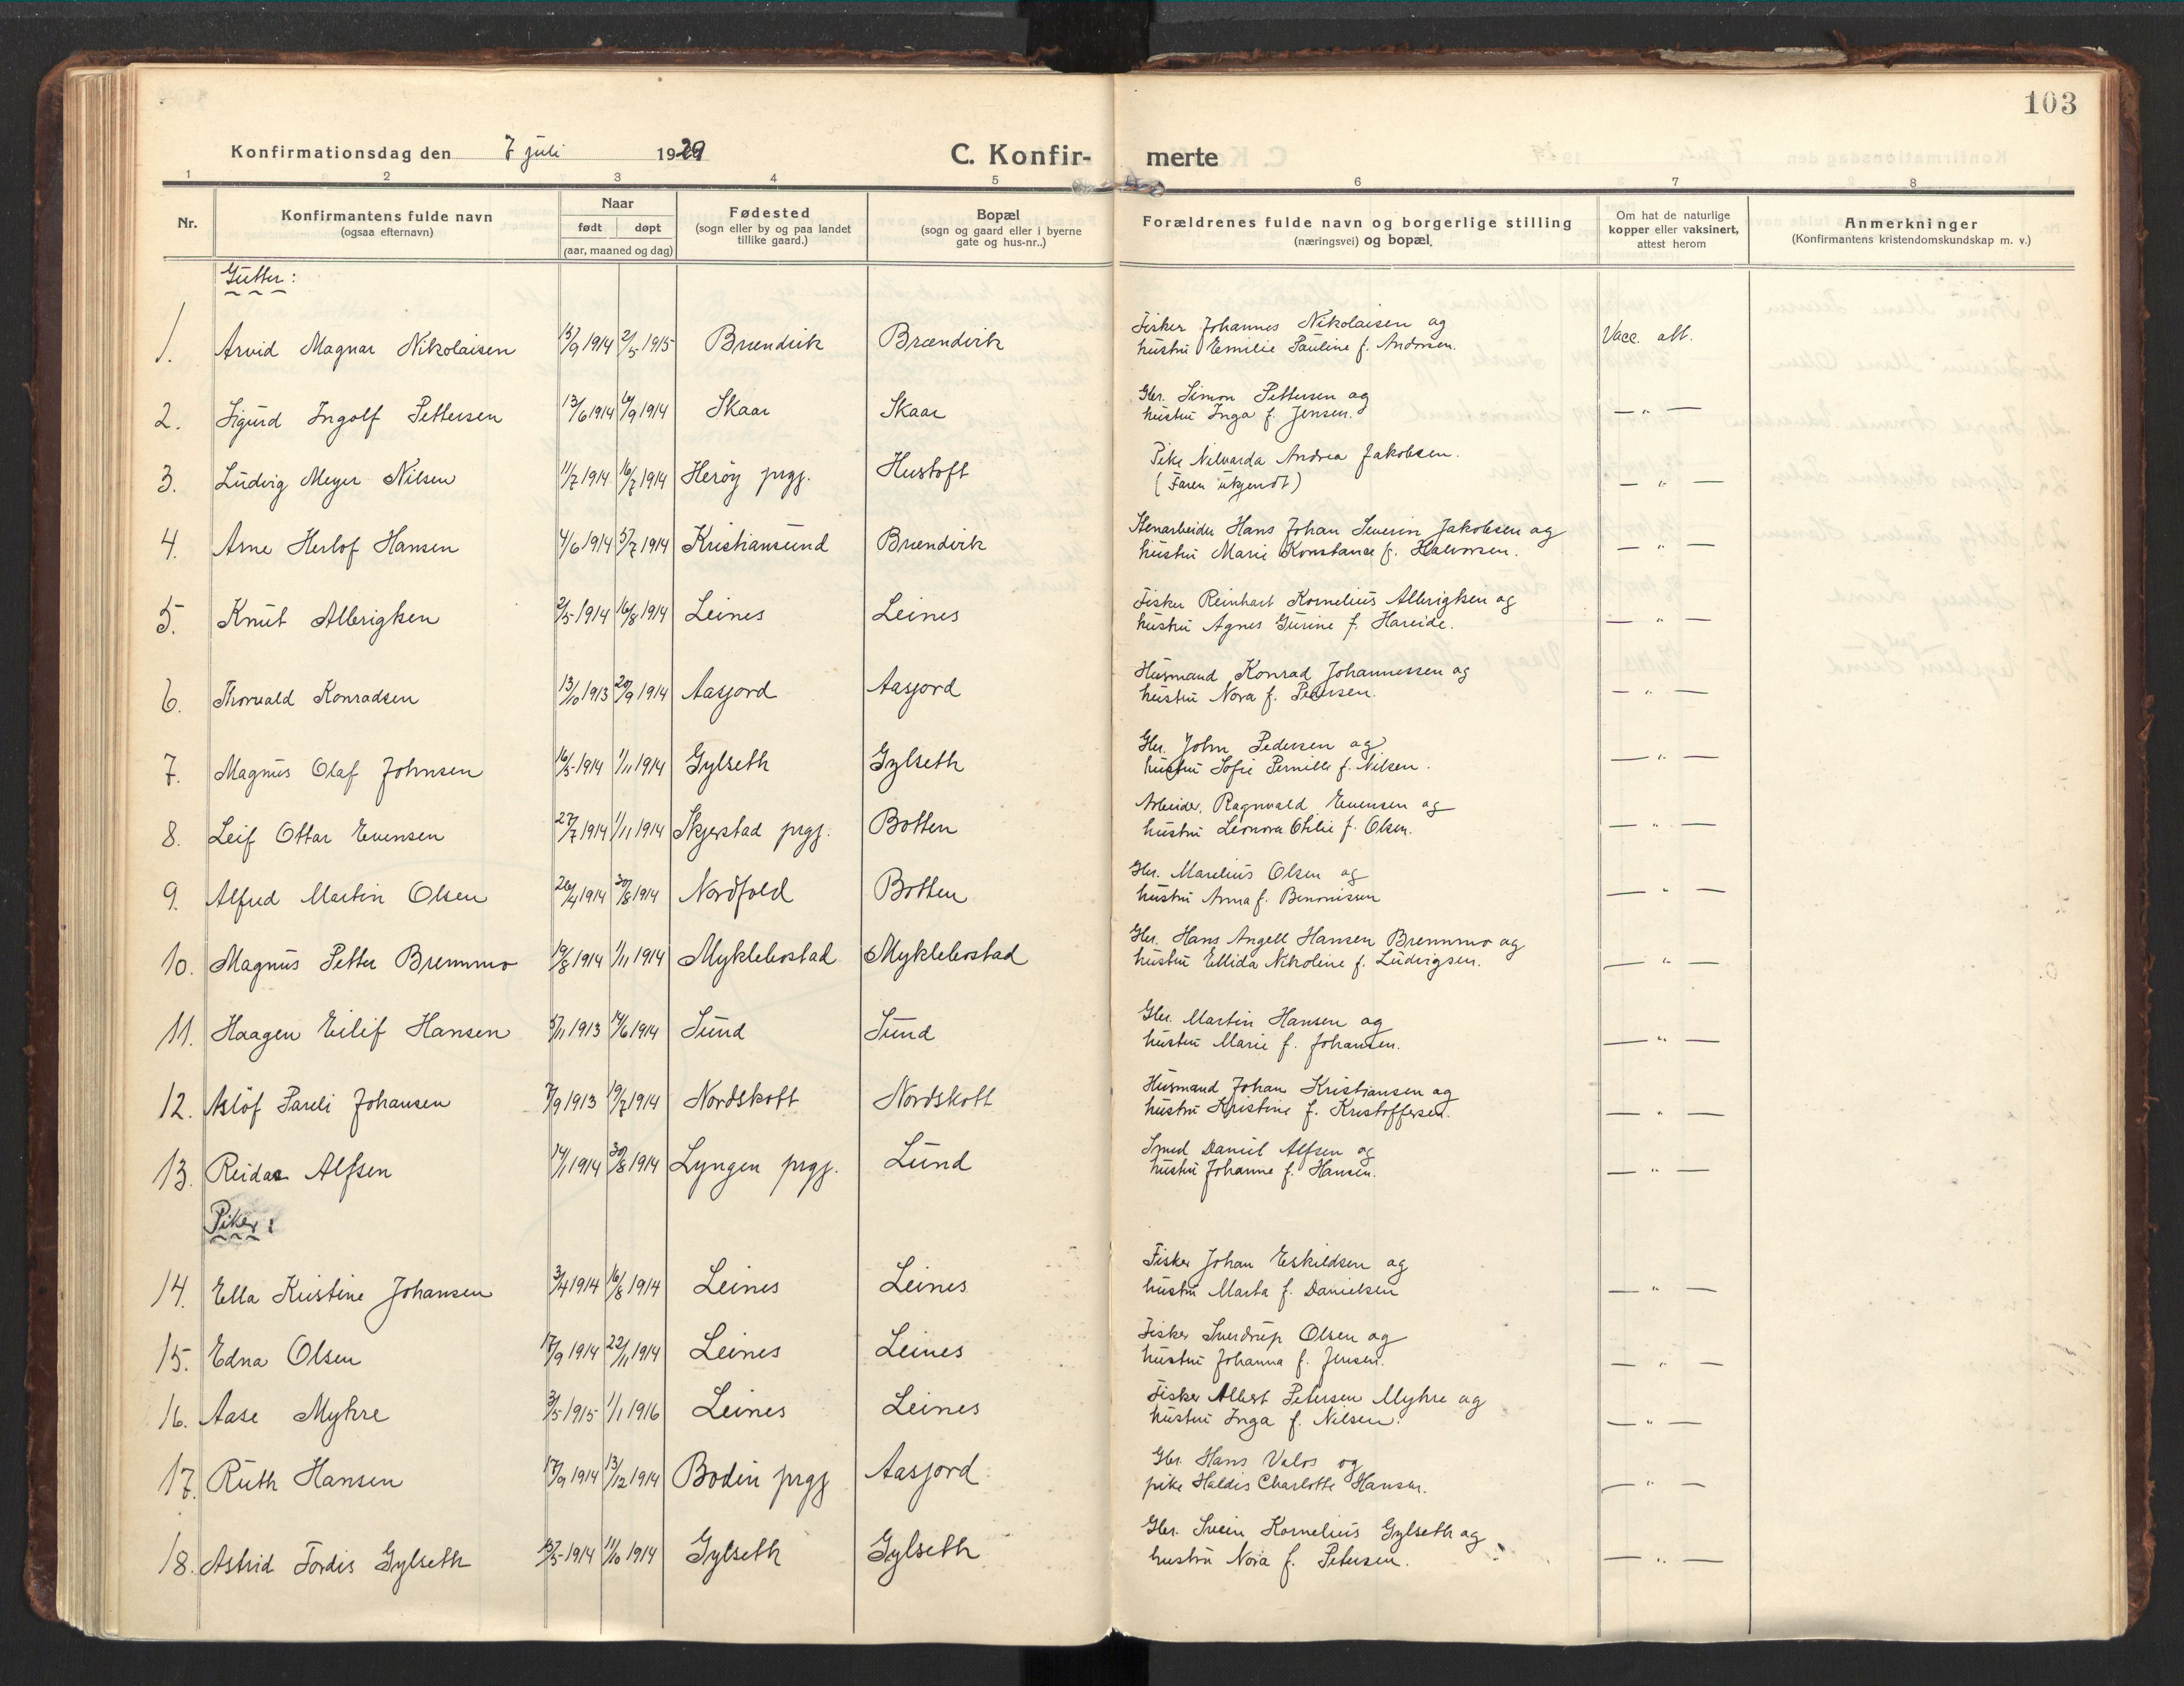 103
Konfirmationsdag den 7 juli 1929
C. Konfirmerte
1 2 3 4 5 6 7 8
Nr.
Konfirmantens fulde navn
(ogsaa efternavn)
Naar
født døpt
(aar, maaned og dag)
Fødested
(sogn eller by og paa landet
tillike gaard.)
Bopæl
(sogn og gaard eller i byerne
gate og hus-nr..)
Forældrenes fulde navn og borgerlige stilling
(næringsvei) og bopæl.
Om hat de naturlige
kopper eller vaksinert,
attest herom
Anmerkninger
(Konfirmantens kristendomskundskap m. v.)
Gutter:
1. Arvid Magnar Nikolaisen 15/9 1914 2/5 1915 Brændvik Brændvik
Fisker Johannes Nikolaisen og
hustru Emilie Pauline f. Andorsen.
Vacc. att.
2. Sigurd Ingolf Pettersen 13/6 1914 6/9 1914 Skaar Skaar
Gbr. Simon Pettersen og
hustru Inga f. Jensen.
— " —
3. Ludvig Meyer Nilsen 11/7 1914 16/7 1914 Herøy prgj. Hustoft
Pike Nilvarda Andrea Jakobsen.
(Faren ukjendt)
— " —
4. Arne Herlof Hansen 4/6 1914 5/7 1914 Kristiansund Brændvik
Stenarbeider Hans Johan Severin Jakobsen og
hustru Marie Konstance f. Halvorsen.
— " —
5. Knut Albrigtsen 2/5 1914 16/8 1914 Leines Leines
Fisker Reinhart Kornelius Albrigtsen og
hustru Agnes Gurine f. Hareide.
— " —
6. Thorvald Konradsen 13/10 1913 20/9 1914 Aasjord Aasjord
Husmand Konrad Johannessen og
hustru Nora f. Pedersen.
— " —
7. Magnus Olaf Johnsen 16/5 1914 1/11 1914 Gylseth Gylseth
Gbr. John Pedersen og
hustru Sofie Pernille f. Nilsen.
— " —
8. Leif Ottar Evensen 27/7 1914 1/11 1914 Skjerstad prgj. Botten
Arbeider. Ragnvald Evensen og
hustru Leonora Otilie f. Olsen.
— " —
9. Alfred Martin Olsen 26/4 1914 30/8 1914 Nordfold Botten
Gbr. Marelius Olsen og
hustru Anna f. Benonisen
— " —
10. Magnus Petter Bremmo 19/8 1914 1/11 1914 Myklebostad Myklebostad
Gbr. Hans Angell Hansen Bremmo og
hustru Ellida Nikoline f. Ludvigsen.
— " —
11. Haagen Eilif Hansen 5/11 1913 14/6 1914 Sund Sund
Gbr. Martin Hansen og
hustru Marie f. Johansen.
— " —
12. Asløf Pareli Johansen 7/9 1913 19/7 1914 Nordskott Nordskott
Husmand Johan Kristiansen og
hustru Kristine f. Kristoffersen.
— " —
13. Reidar Alfsen 14/1 1914 30/8 1914 Lyngen prgj. Lund
Smed Daniel Alfsen og
hustru Johanne f. Hansen.
— " —
Piker:
14. Ella Kristine Johansen 3/4 1914 16/8 1914 Leines Leines
Fisker Johan Eskildsen og
hustru Marta f. Danielsen
— " —
15. Edna Olsen 17/9 1914 22/11 1914 Leines Leines
Fisker Sverdrup Olsen og
hustru Johanna f. Jensen.
— " —
16. Aase Myhre 3/5 1915 1/1 1916 Leines Leines
Fisker Albert Petersen Myhre og
hustru Inga f. Nilsen.
— " —
17. Ruth Hansen 17/9 1914 13/12 1914 Bodin prgj Aasjord
Gbr. Hans Valos og
pike Haldis Charlotte Hansen.
— " —
18. Astrid Tordis Gylseth 1914 11/10 1914 Gylseth Gylseth
Gbr. Svein Kornelius Gylseth og
hustru Nora f. Petersen.
— " —